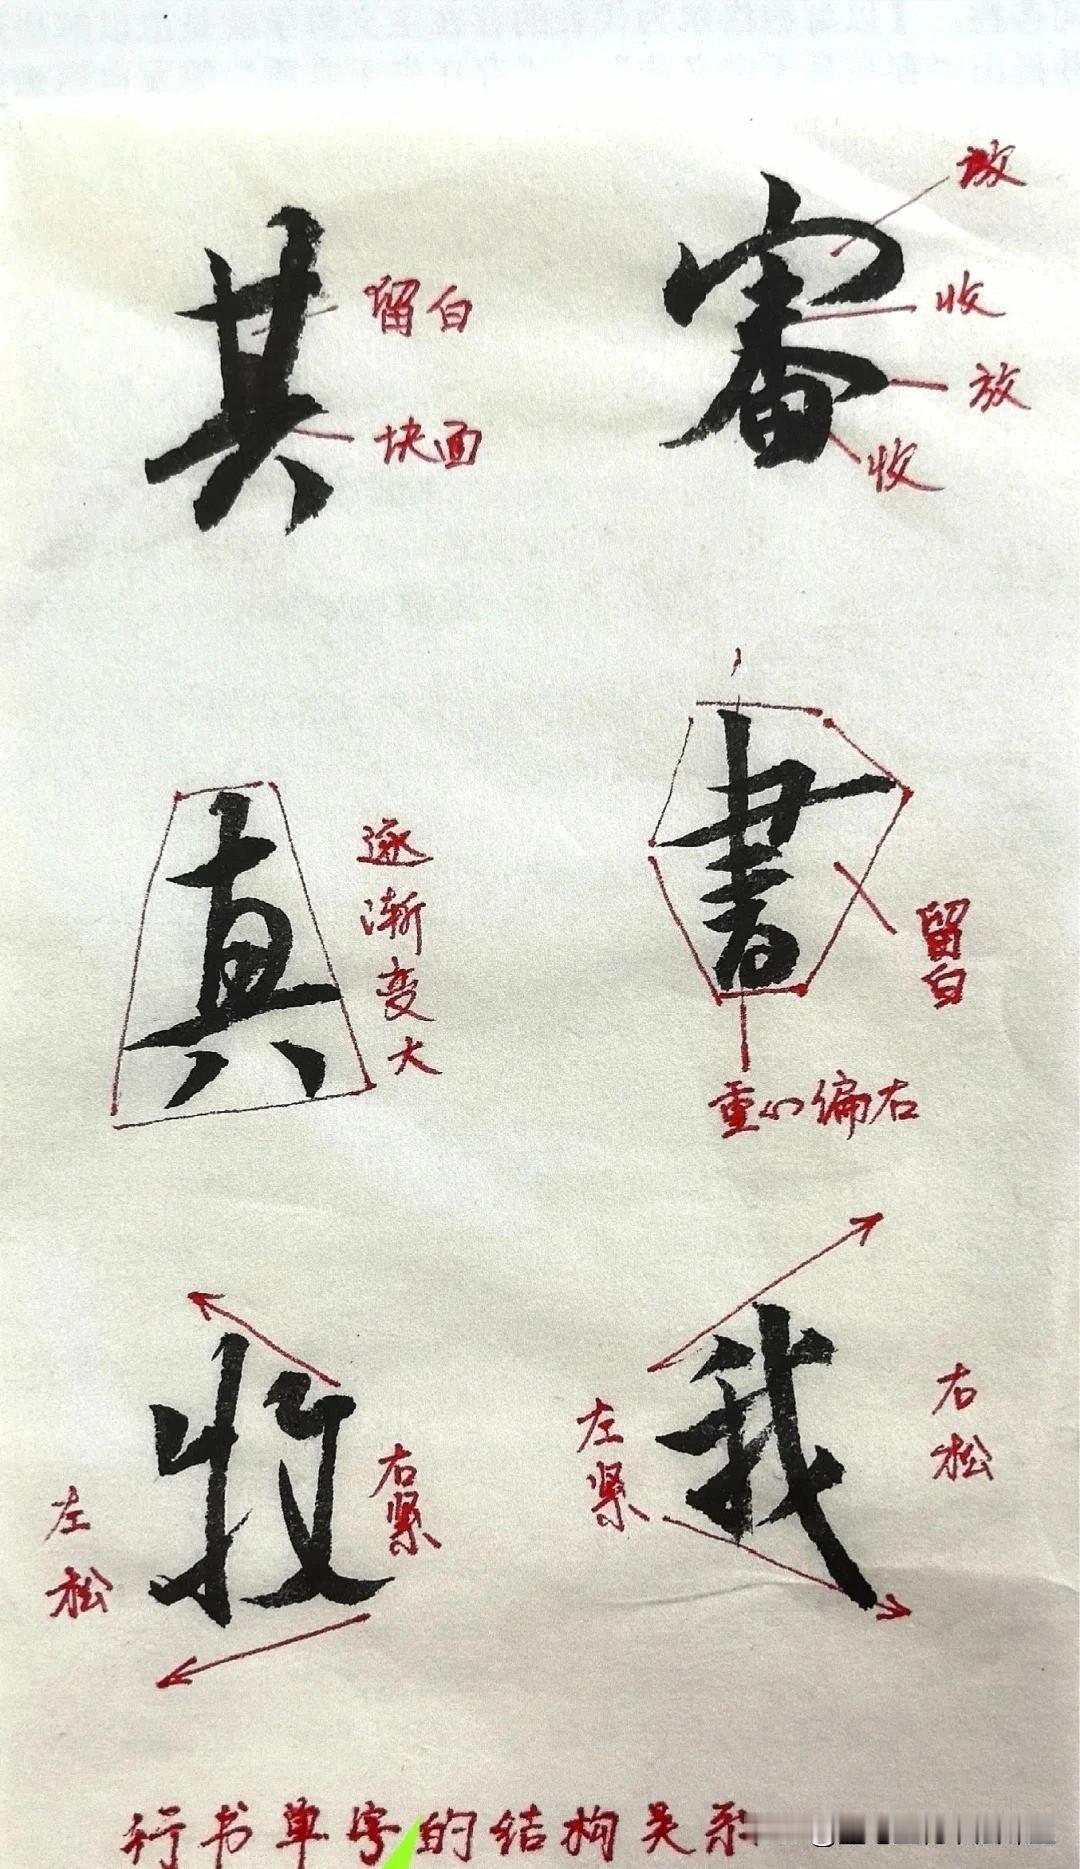 共 留白 块面
審 放 收 放 收
真 逐渐变大
書 留白 重心偏右
收 左松 右紧
我 左紧 右松
行书单字的结构关系